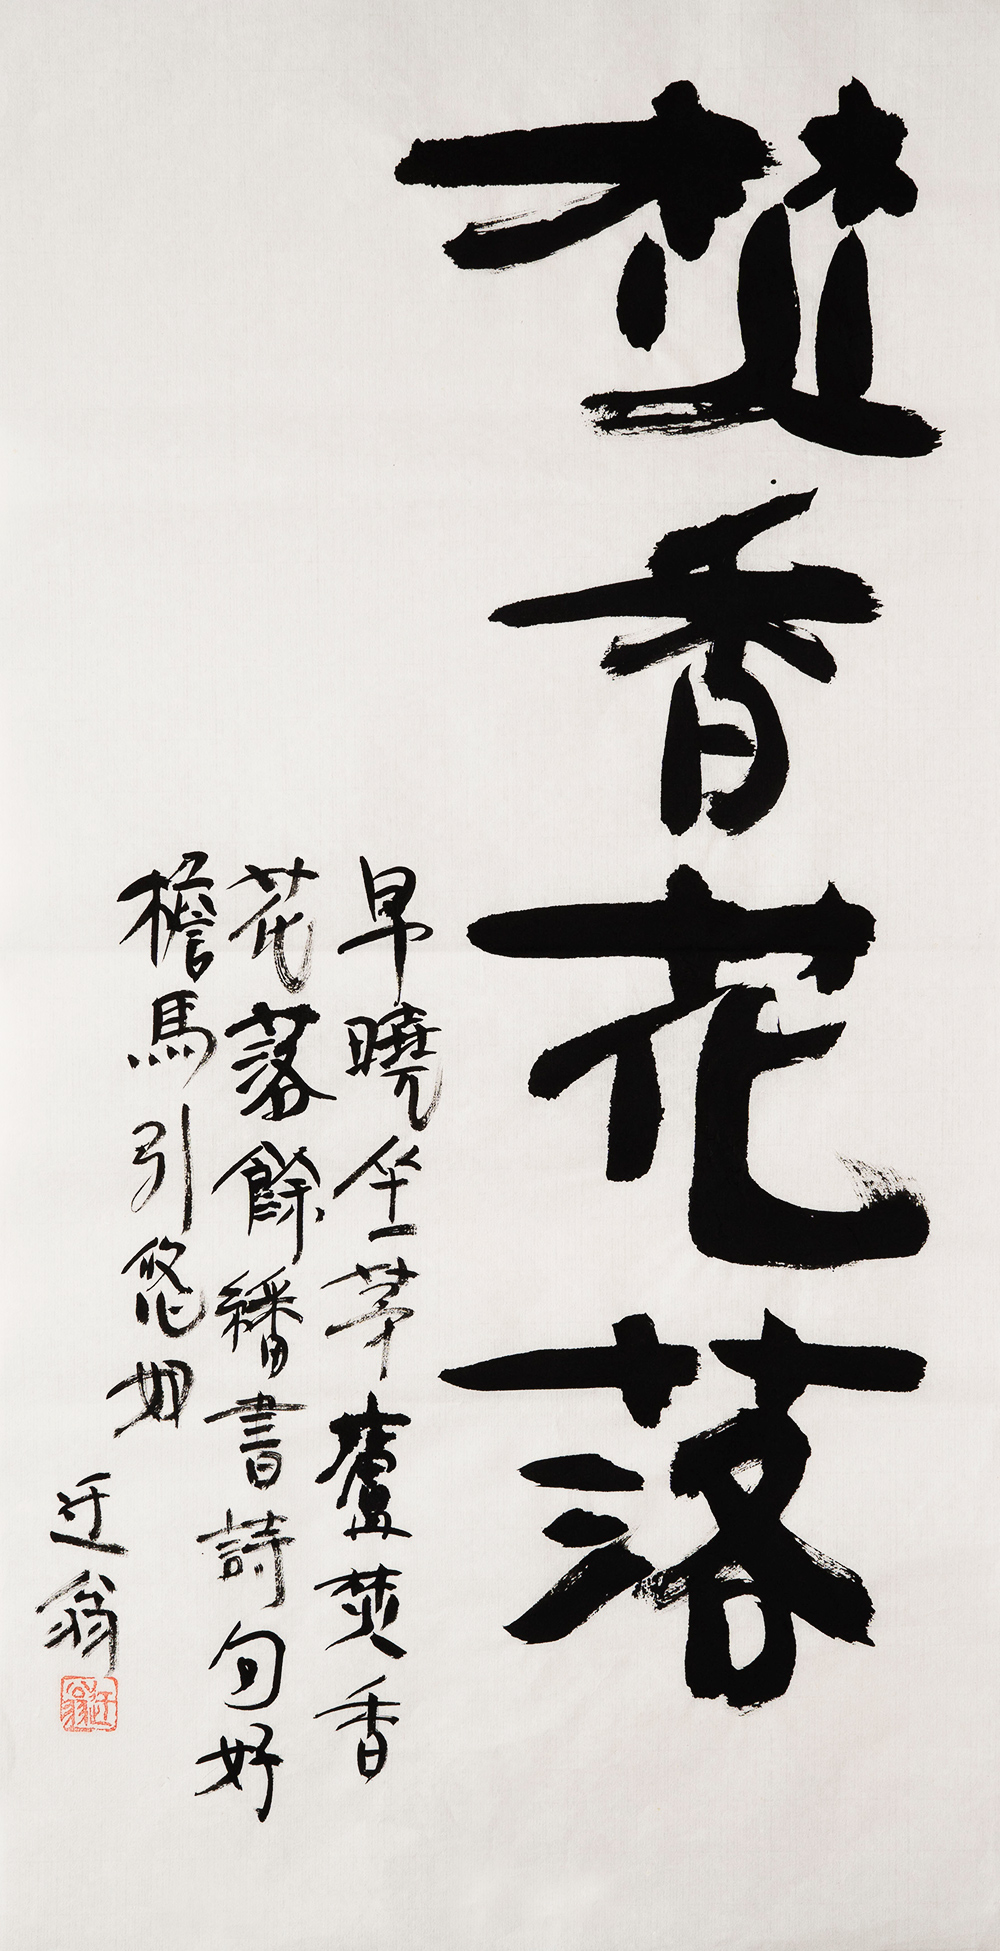 焚香花落
早曉坐茅廬焚香
花落餘繙書詩句好
檐馬引悠如
迂翁
迂翁